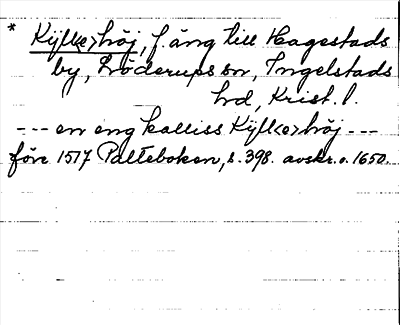 * Kÿlke>höj, f. äng till Hagestads
by, Löderups sn, Ingelstads
hd, Krist. l.
--- en eng kalliss Kÿlke>höj ---
före 1517 Palteboken, s. 398. avskr. o. 1650.